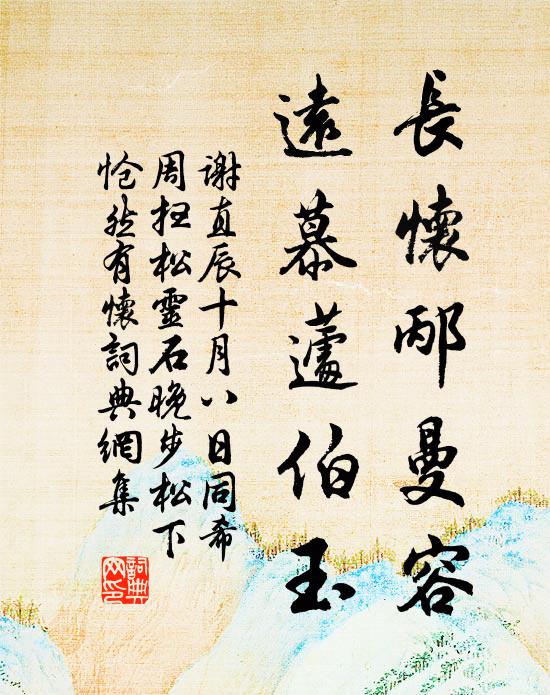 長懷邴曼容
遠慕蘧伯玉
謝直辰十月八日同希
周扫松靈石晚步松下
怆然有懷詞典網集
詞典网印